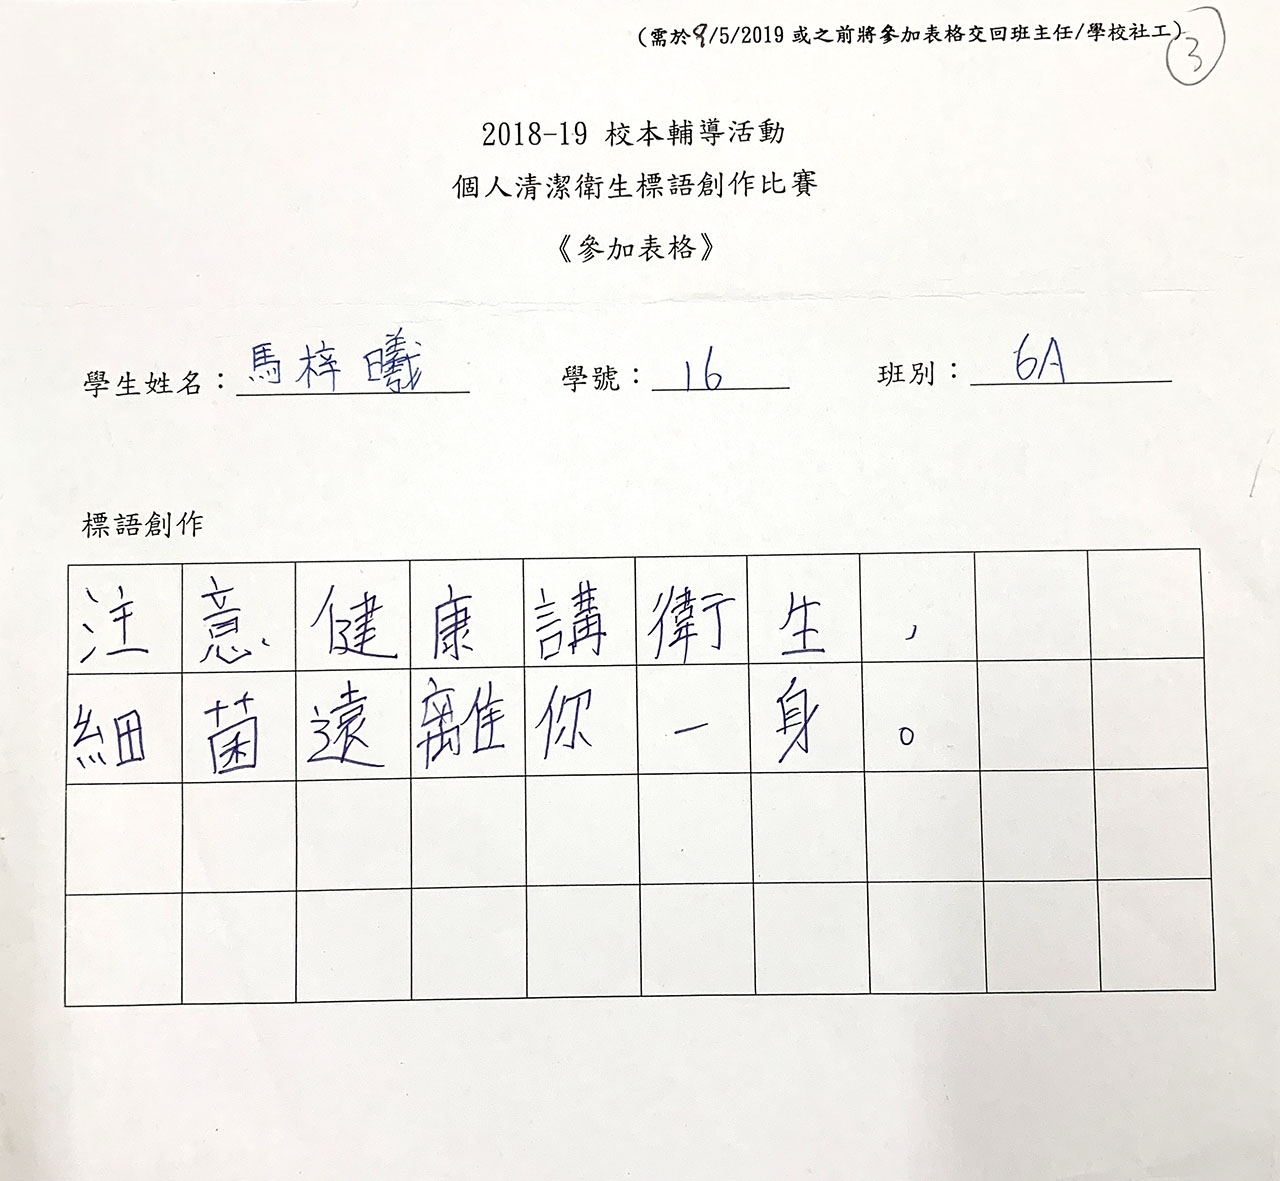 (需於8/5/2019或之前將參加表格交回班主任/學校社工)
3
2018-19 校本輔導活動
個人清潔衛生標語創作比賽
《參加表格》
學生姓名：馬梓曦 學號：16 班別：6A
標語創作
注意健康講衛生，
細菌遠離你一身。